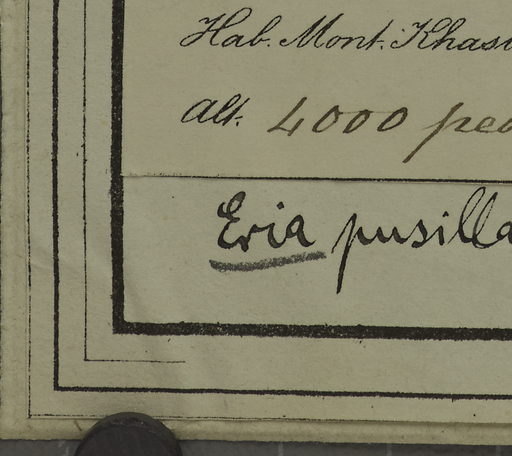 Hab. Mont. Khasi
Alt. 4000 ped
Eria pusilla